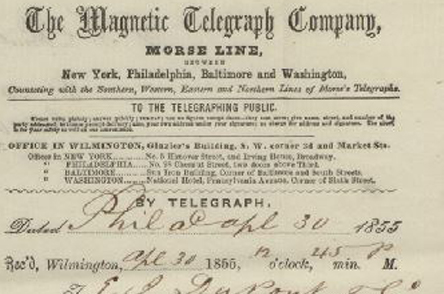 The Magnetic Telegraph Company,
MORSE LINE,
BETWEEN
New York, Philadelphia, Baltimore and Washington,
Connecting with the Southern, Western, Eastern and Northern Lines of Morse's Telegraphs.
TO THE TELEGRAPHING PUBLIC.
OFFICE IN WILMINGTON, Glazier's Building, S. W. corner 3d and Market Sts.
Offices in NEW YORK..........No. 5 Hanover Street, and Irving House, Broadway.
" PHILADELPHIA......No. Chesnut Street, two doors above Third.
" BALTIMORE..........Sun Iron Building, Corner of Baltimore and South Streets.
" WASHINGTON........National Hotel, Pennsylvania Avenue, Corner of Sixth Street.
BY TELEGRAPH,
Dated Philad apl 30 1855
Rec'd, Wilmington, apl 30 1855, 12 o'clock, 45 min. P M.
To E I DuPont